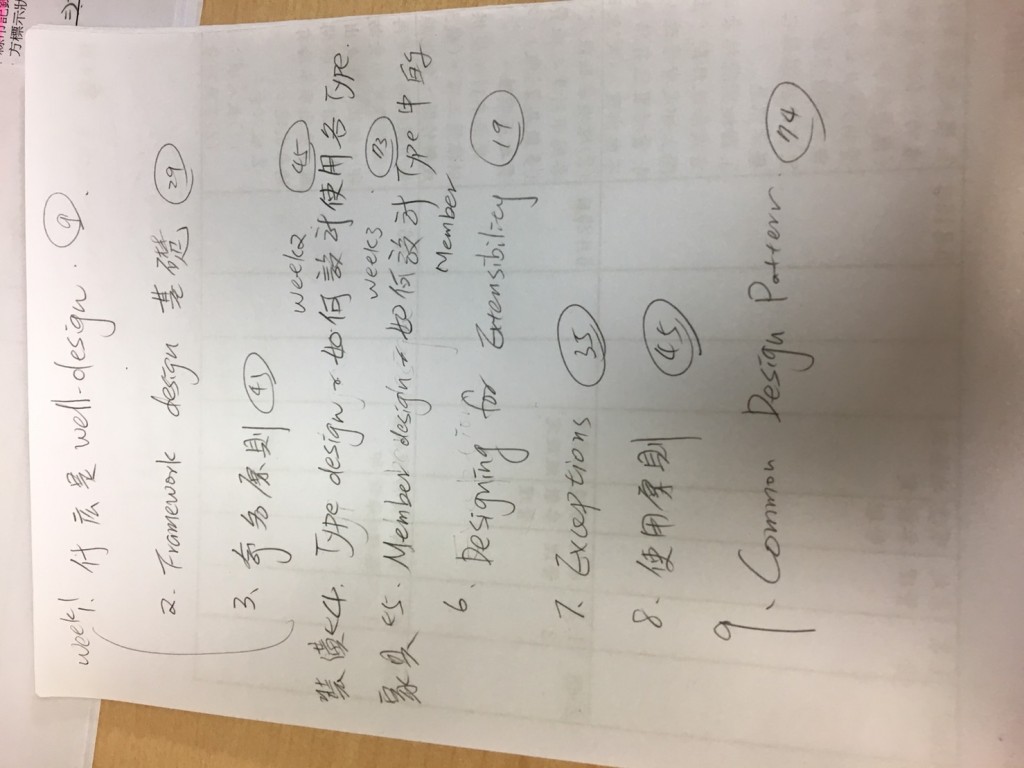 week1. 什広是 well-design. ⑨.
2. Framework design 基礎 ㉙
3、命名原則 ㊶
4. Type design ~ 如何設計使用各 Type. week2 ㊺
5. Member design ~ 如何設計 Type 中的 Member week3.
6、Designing for Extensibility ⑲
7. Exceptions ㉟
8、使用原則 ㊺
9、Common Design Pattern. (74)